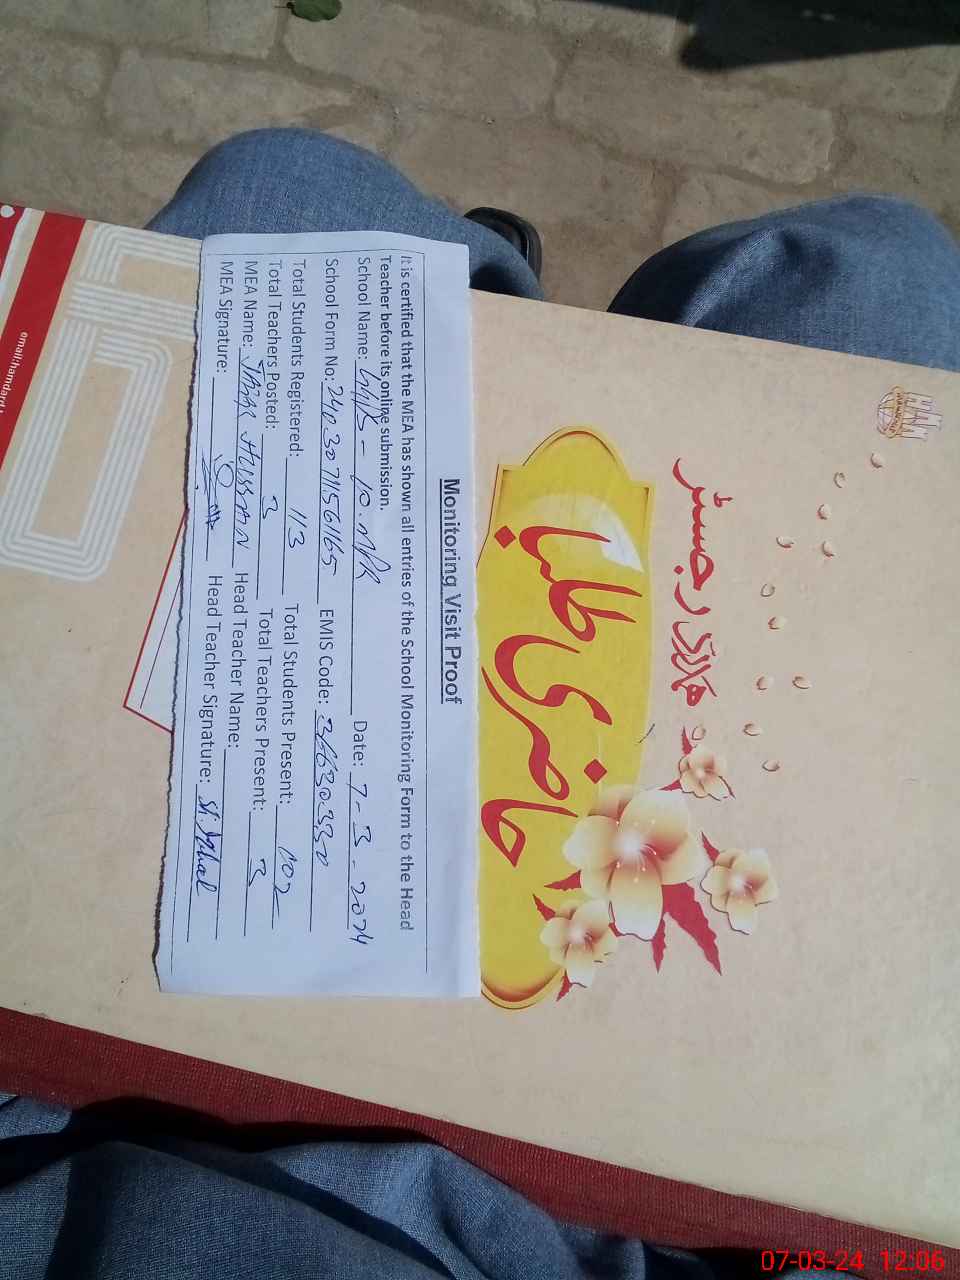 Monitoring Visit Proof
It is certified that the MEA has shown all entries of the School Monitoring Form to the Head
Teacher before its online submission.
School Name: Date: 7-3-2024
School Form No: 2403071156165 EMIS Code: 31630330
Total Students Registered: 113 Total Students Present: 102
Total Teachers Posted: 3 Total Teachers Present: 3
MEA Name: Hussain Head Teacher Name:
MEA Signature: Head Teacher Signature:
رجسٹر
حاضری طلبا
email:hamdard
07-03-24 12:06